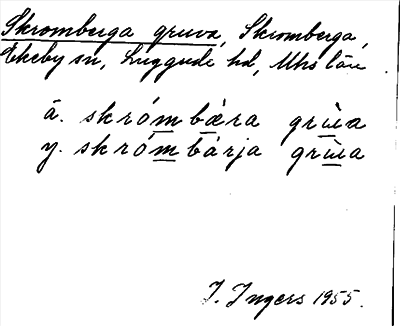 Skromberga gruva, Skromberga,
Ekeby sn, Luggude hd, Mhs län
ä. skrómbæra grùa
y. skrómbárja grùa
I. Ingers 1955.